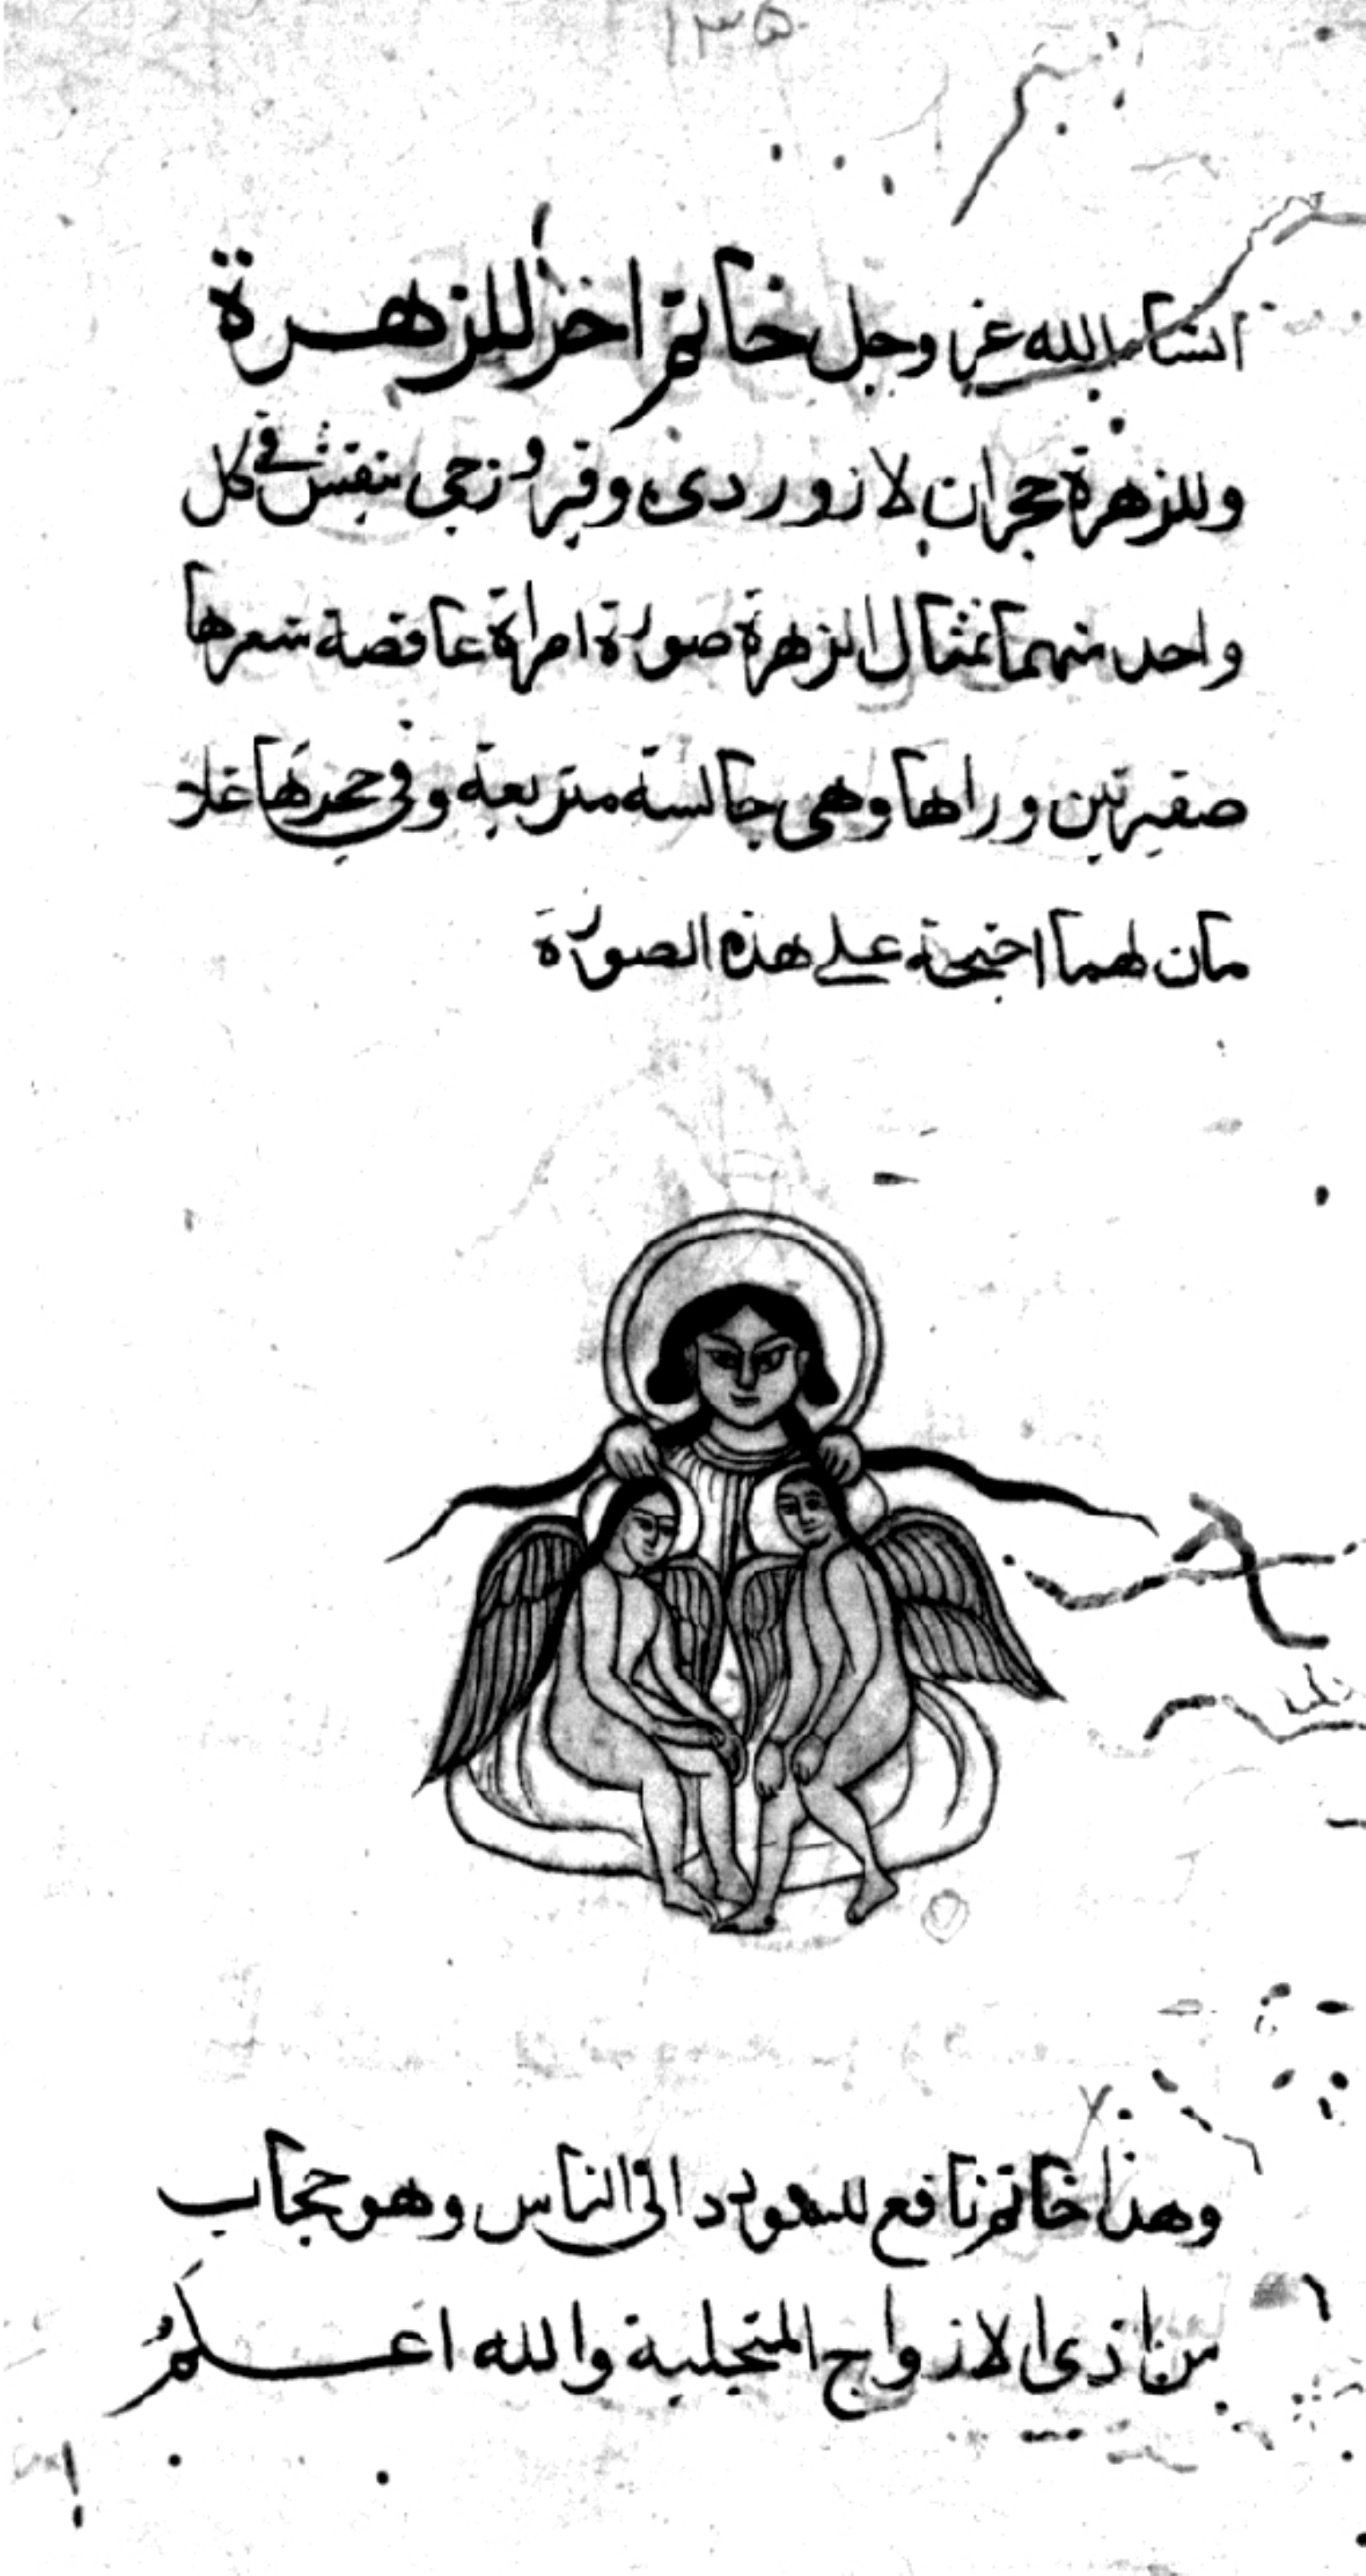 ١٣٥
انشاالله عز وجل خاتم اخر للزهرة
وللزهرة حجران لازوردى وفيروزجى ينقش فى كل
واحد منهما تمثال الزهرة صورة امراة عاقصة شعرها
صفيرتين وراها وهى جالسة متربعة وفى حجرها غلا
مان لهما اجنحة على هذه الصورة
وهذا خاتم نافع للتودد الى الناس وهو حجاب
من اذى الازواج المتجلبة والله اعلم